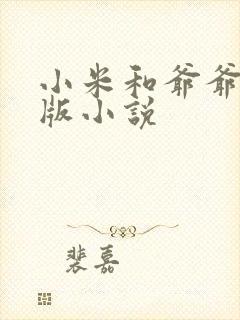 小米和爷爷
版小说
裴嘉